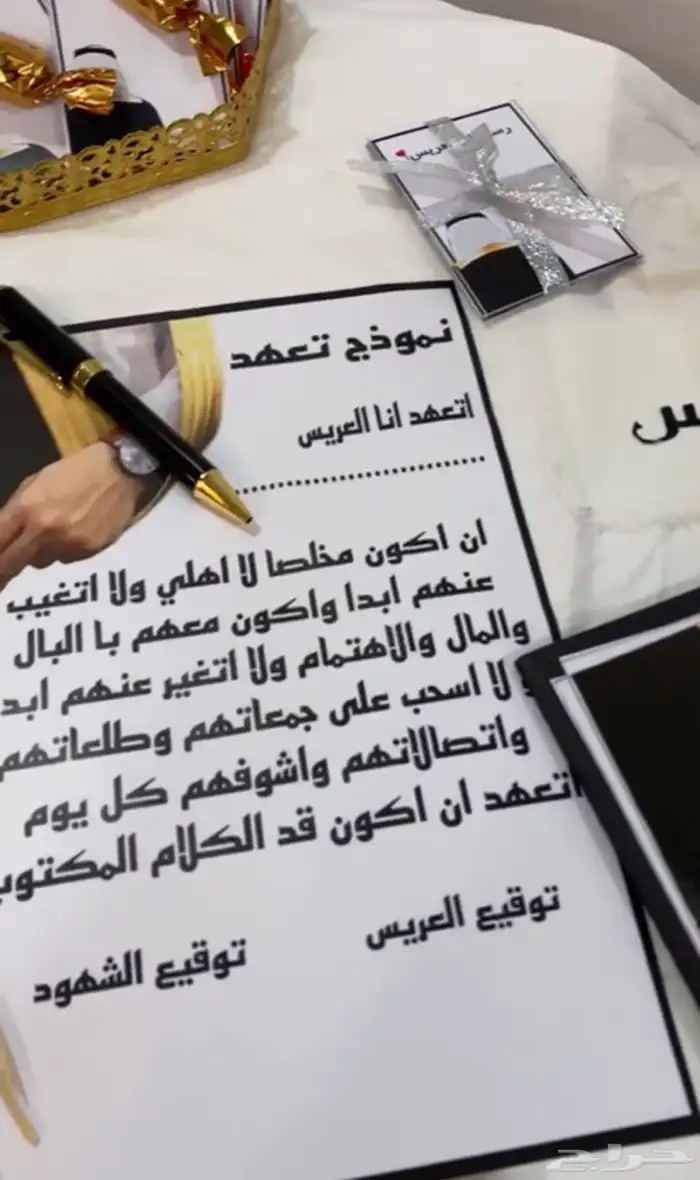 العريس
نموذج تعهد
اتعهد انا العريس
................................
ان اكون مخلصا لا اهلي ولا اتغيب
عنهم ابدا واكون معهم با البال
والمال والاهتمام ولا اتغير عنهم ابد
لا اسحب على جمعاتهم وطلعاتهم
واتصالاتهم واشوفهم كل يوم
اتعهد ان اكون قد الكلام المكتوب
توقيع العريس
توقيع الشهود
حراج